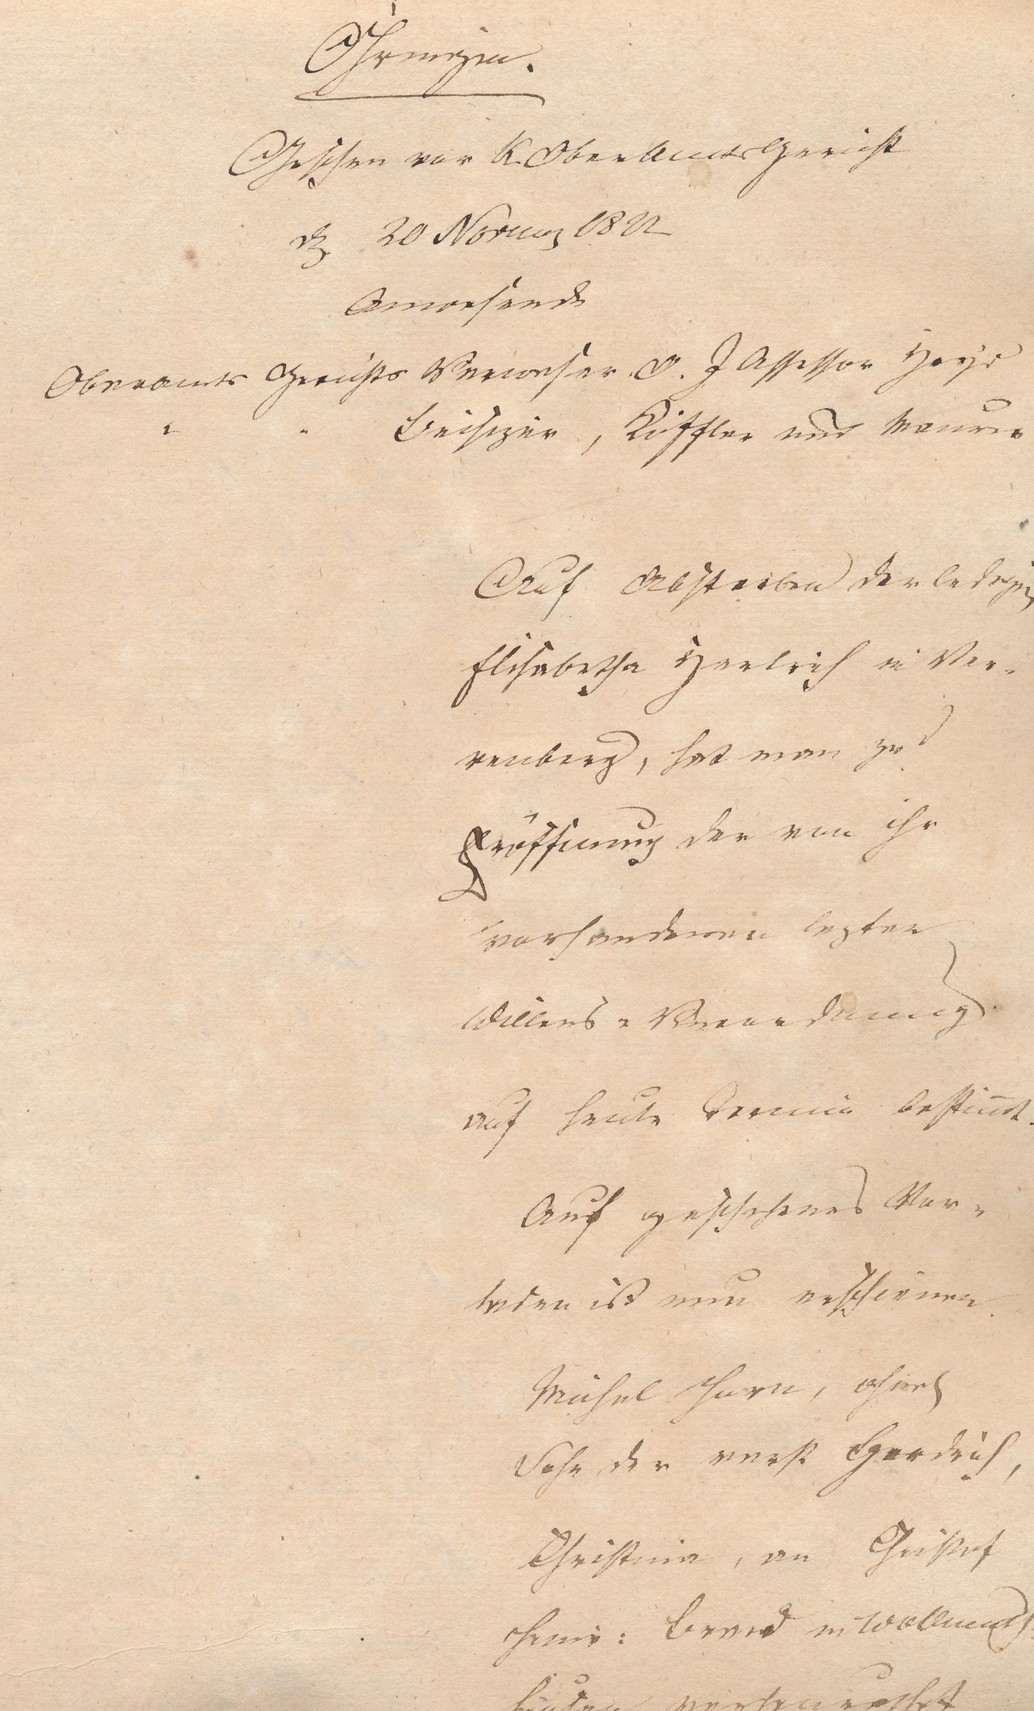 Öhringen.
Geschehen vor K. OberAmtsGericht
d. 20 Novemb 1822
Anwesende
Oberamts Gerichts Verweser O. J Assessor Heyd
" " Beisizer, Küffler und Maurer
Auf Absterben der ledigen
Elisabetha Herlrich in Ver-
renberg, hat man zur
Eröffnung der von ihr
vorhandenen lezten
Willens-Verordnung
auf heute Termin bestimt.
Auf geschehenes Vor-
laden ist nun erschienen
Michel Horn,
Sohn der verst
Christina, an Christof
in Woll
hausen verheurathet